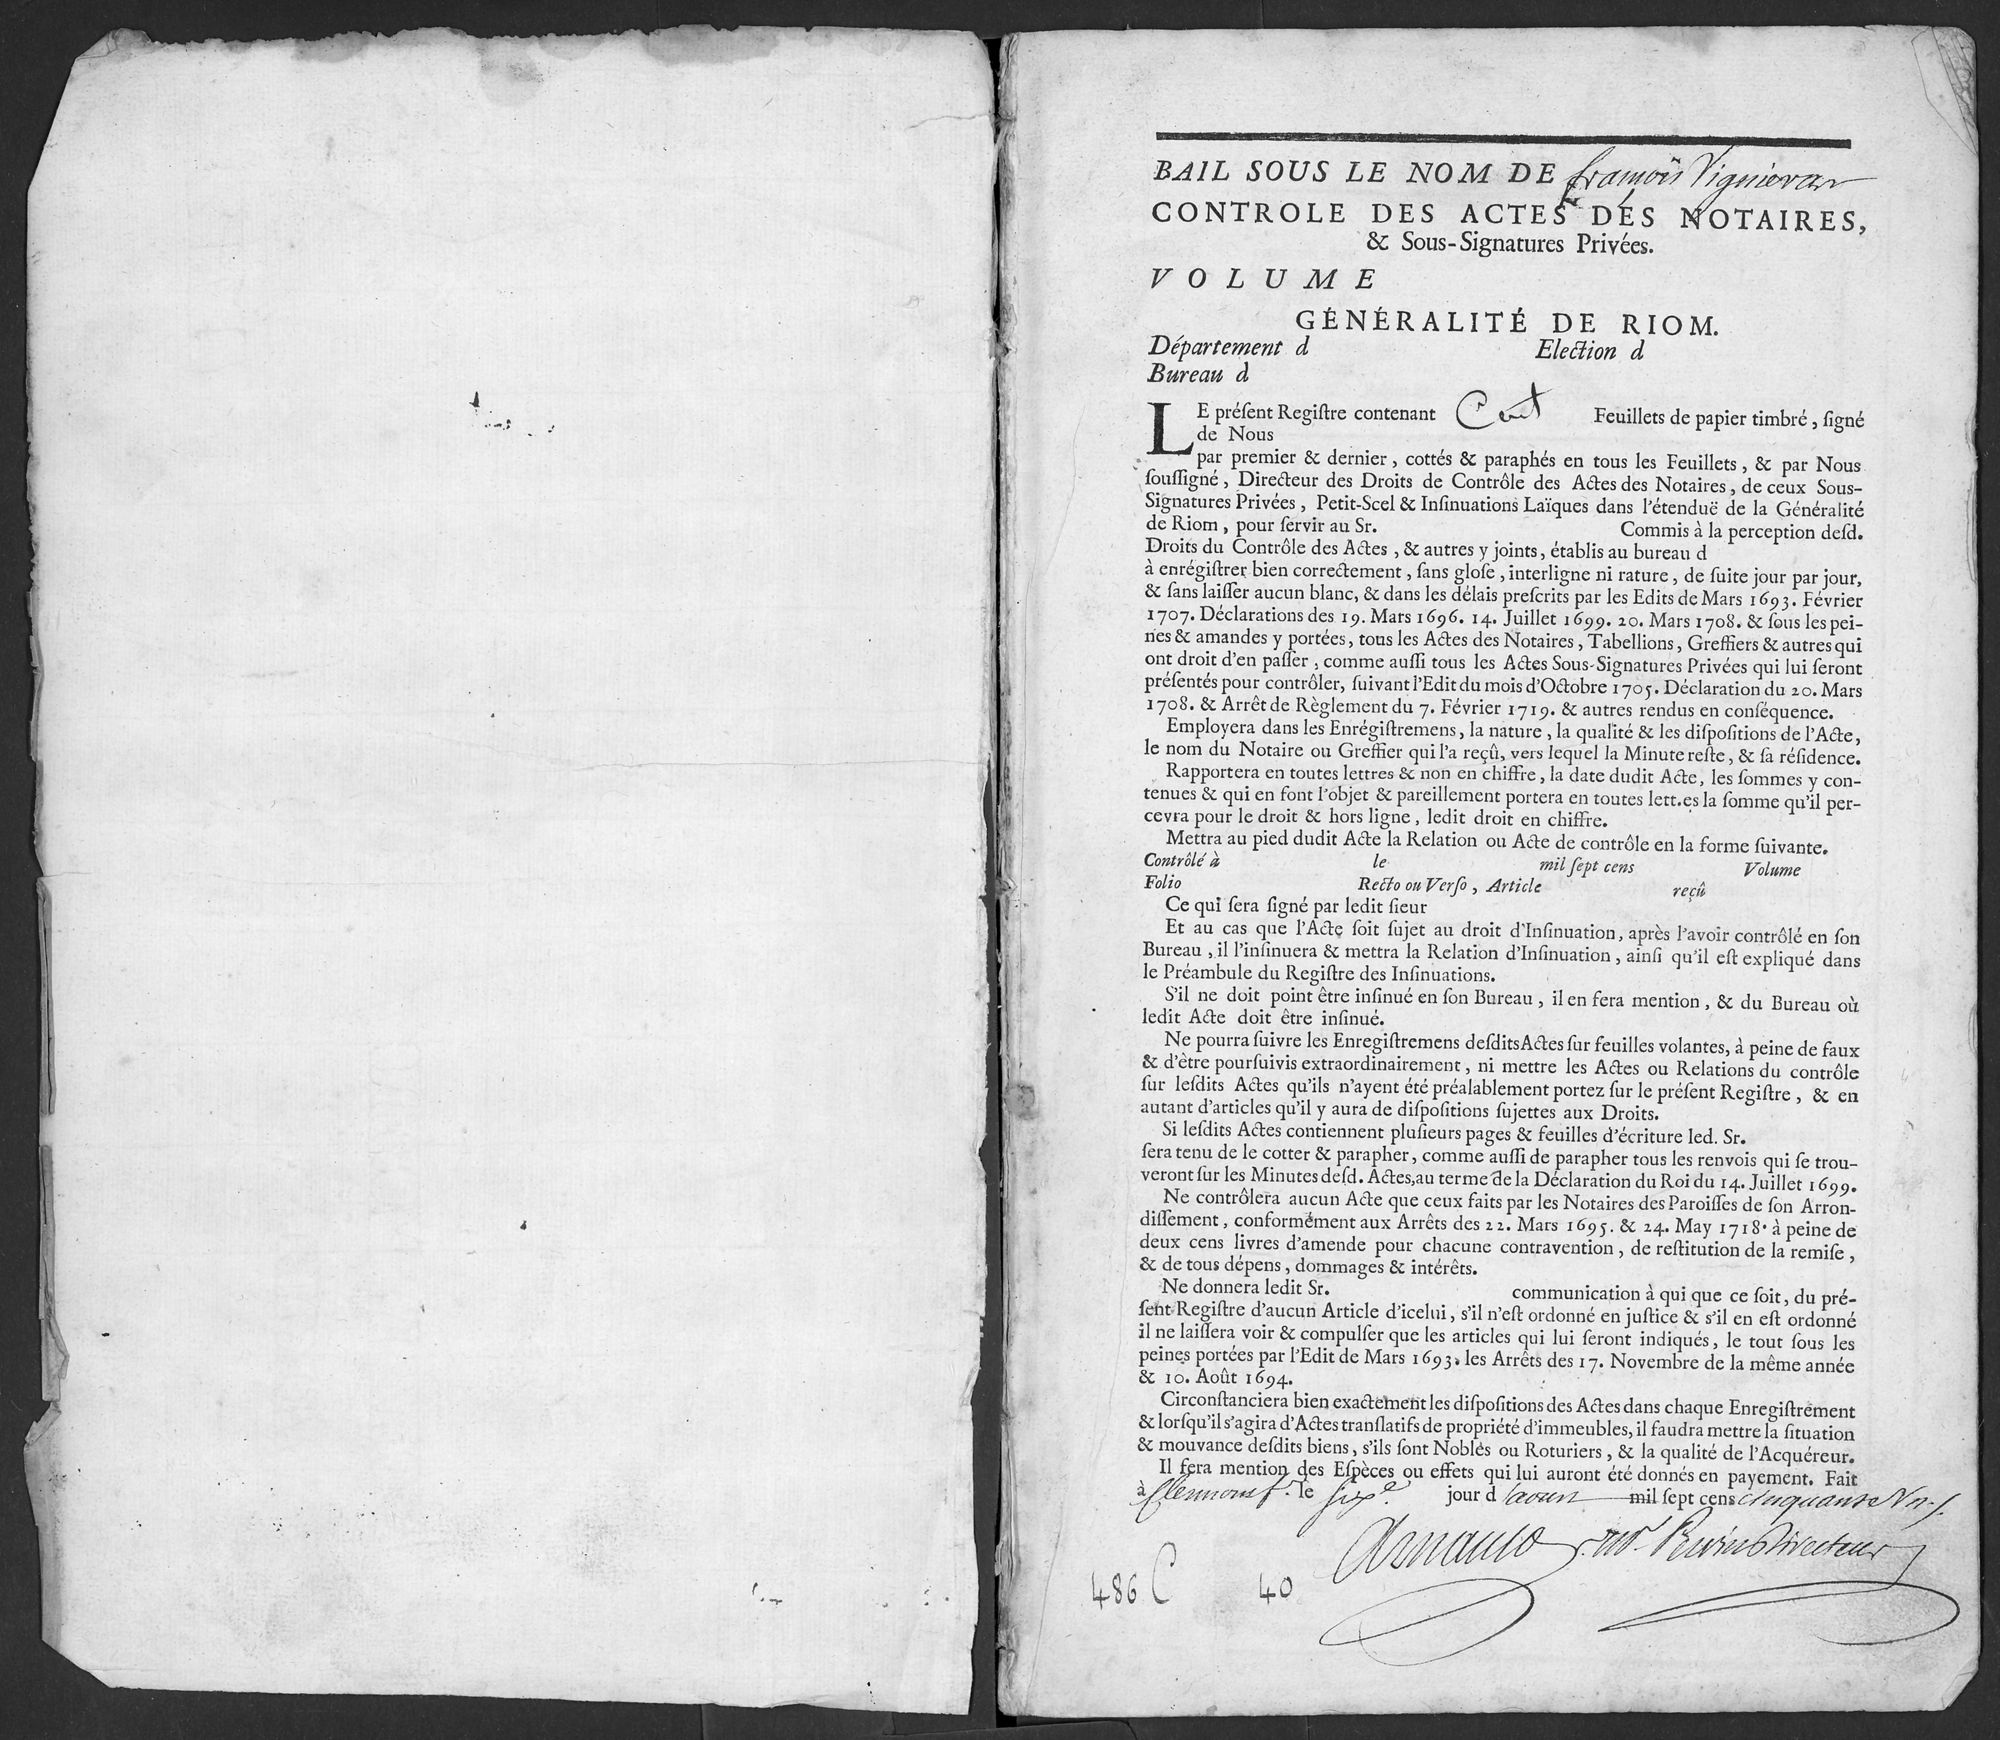 BAIL SOUS LE NOM DE François
CONTROLE DES ACTES DES NOTAIRES,
& Sous-Signatures Privées.
VOLUME
GÉNÉRALITÉ DE RIOM.
Département d Election d
Bureau d
LE préſent Regiſtre contenant Cent Feuillets de papier timbré, ſigné
de Nous
par premier & dernier, cottés & paraphés en tous les Feuillets, & par Nous
ſouſſigné, Directeur des Droits de Contrôle des Actes des Notaires, de ceux Sous-
Signatures Privées, Petit-Scel & Inſinuations Laïques dans l'étenduë de la Généralité
de Riom, pour ſervir au Sr. Commis à la perception deſd.
Droits du Contrôle des Actes, & autres y joints, établis au bureau d
à enrégiſtrer bien correctement, ſans gloſe, interligne ni rature, de ſuite jour par jour,
& ſans laiſſer aucun blanc, & dans les délais preſcrits par les Edits de Mars 1693. Février
1707. Déclarations des 19. Mars 1696. 14. Juillet 1699. 20. Mars 1708. & ſous les pei-
nes & amandes y portées, tous les Actes des Notaires, Tabellions, Greffiers & autres qui
ont droit d'en paſſer, comme auſſi tous les Actes Sous-Signatures Privées qui lui ſeront
préſentés pour contrôler, ſuivant l'Edit du mois d'Octobre 1705. Déclaration du 20. Mars
1708. & Arrêt de Règlement du 7. Février 1719. & autres rendus en conſéquence.
Employera dans les Enrégiſtremens, la nature, la qualité & les diſpoſitions de l'Acte,
le nom du Notaire ou Greffier qui l'a reçû, vers lequel la Minute reſte, & ſa réſidence.
Rapportera en toutes lettres & non en chiffre, la date dudit Acte, les ſommes y con-
tenues & qui en font l'objet & pareillement portera en toutes lett.es la ſomme qu'il per-
cevra pour le droit & hors ligne, ledit droit en chiffre.
Mettra au pied dudit Acte la Relation ou Acte de contrôle en la forme ſuivante.
Contrôlé à le mil ſept cens Volume
Folio Recto ou Verſo, Article reçû
Ce qui ſera ſigné par ledit ſieur
Et au cas que l'Acte ſoit ſujet au droit d'Inſinuation, après l'avoir contrôlé en ſon
Bureau, il l'inſinuera & mettra la Relation d'Inſinuation, ainſi qu'il eſt expliqué dans
le Préambule du Regiſtre des Inſinuations.
S'il ne doit point être inſinué en ſon Bureau, il en fera mention, & du Bureau où
ledit Acte doit être inſinué.
Ne pourra ſuivre les Enregiſtremens deſdits Actes ſur feuilles volantes, à peine de faux
& d'être pourſuivis extraordinairement, ni mettre les Actes ou Relations du contrôle
ſur leſdits Actes qu'ils n'ayent été préalablement portez ſur le préſent Regiſtre, & en
autant d'articles qu'il y aura de diſpoſitions ſujettes aux Droits.
Si leſdits Actes contiennent pluſieurs pages & feuilles d'écriture led. Sr.
ſera tenu de le cotter & parapher, comme auſſi de parapher tous les renvois qui ſe trou-
veront ſur les Minutes deſd. Actes, au terme de la Déclaration du Roi du 14. Juillet 1699.
Ne contrôlera aucun Acte que ceux faits par les Notaires des Paroiſſes de ſon Arron-
diſſement, conformément aux Arrêts des 22. Mars 1695. & 24. May 1718. à peine de
deux cens livres d'amende pour chacune contravention, de reſtitution de la remiſe,
& de tous dépens, dommages & intérêts.
Ne donnera ledit Sr. communication à qui que ce ſoit, du pré-
ſent Regiſtre d'aucun Article d'icelui, s'il n'eſt ordonné en juſtice & s'il en eſt ordonné
il ne laiſſera voir & compulſer que les articles qui lui ſeront indiqués, le tout ſous les
peines portées par l'Edit de Mars 1693. les Arrêts des 17. Novembre de la même année
& 10. Août 1694.
Circonſtanciera bien exactement les diſpoſitions des Actes dans chaque Enregiſtrement
& lorſqu'il s'agira d'Actes tranſlatifs de propriété d'immeubles, il faudra mettre la ſituation
& mouvance deſdits biens, s'ils ſont Nobles ou Roturiers, & la qualité de l'Acquéreur.
Il fera mention des Eſpèces ou effets qui lui auront été donnés en payement. Fait
à Clermont le Six.e jour d mil ſept cens cinquante
Arnauld Directeur
486 C 40